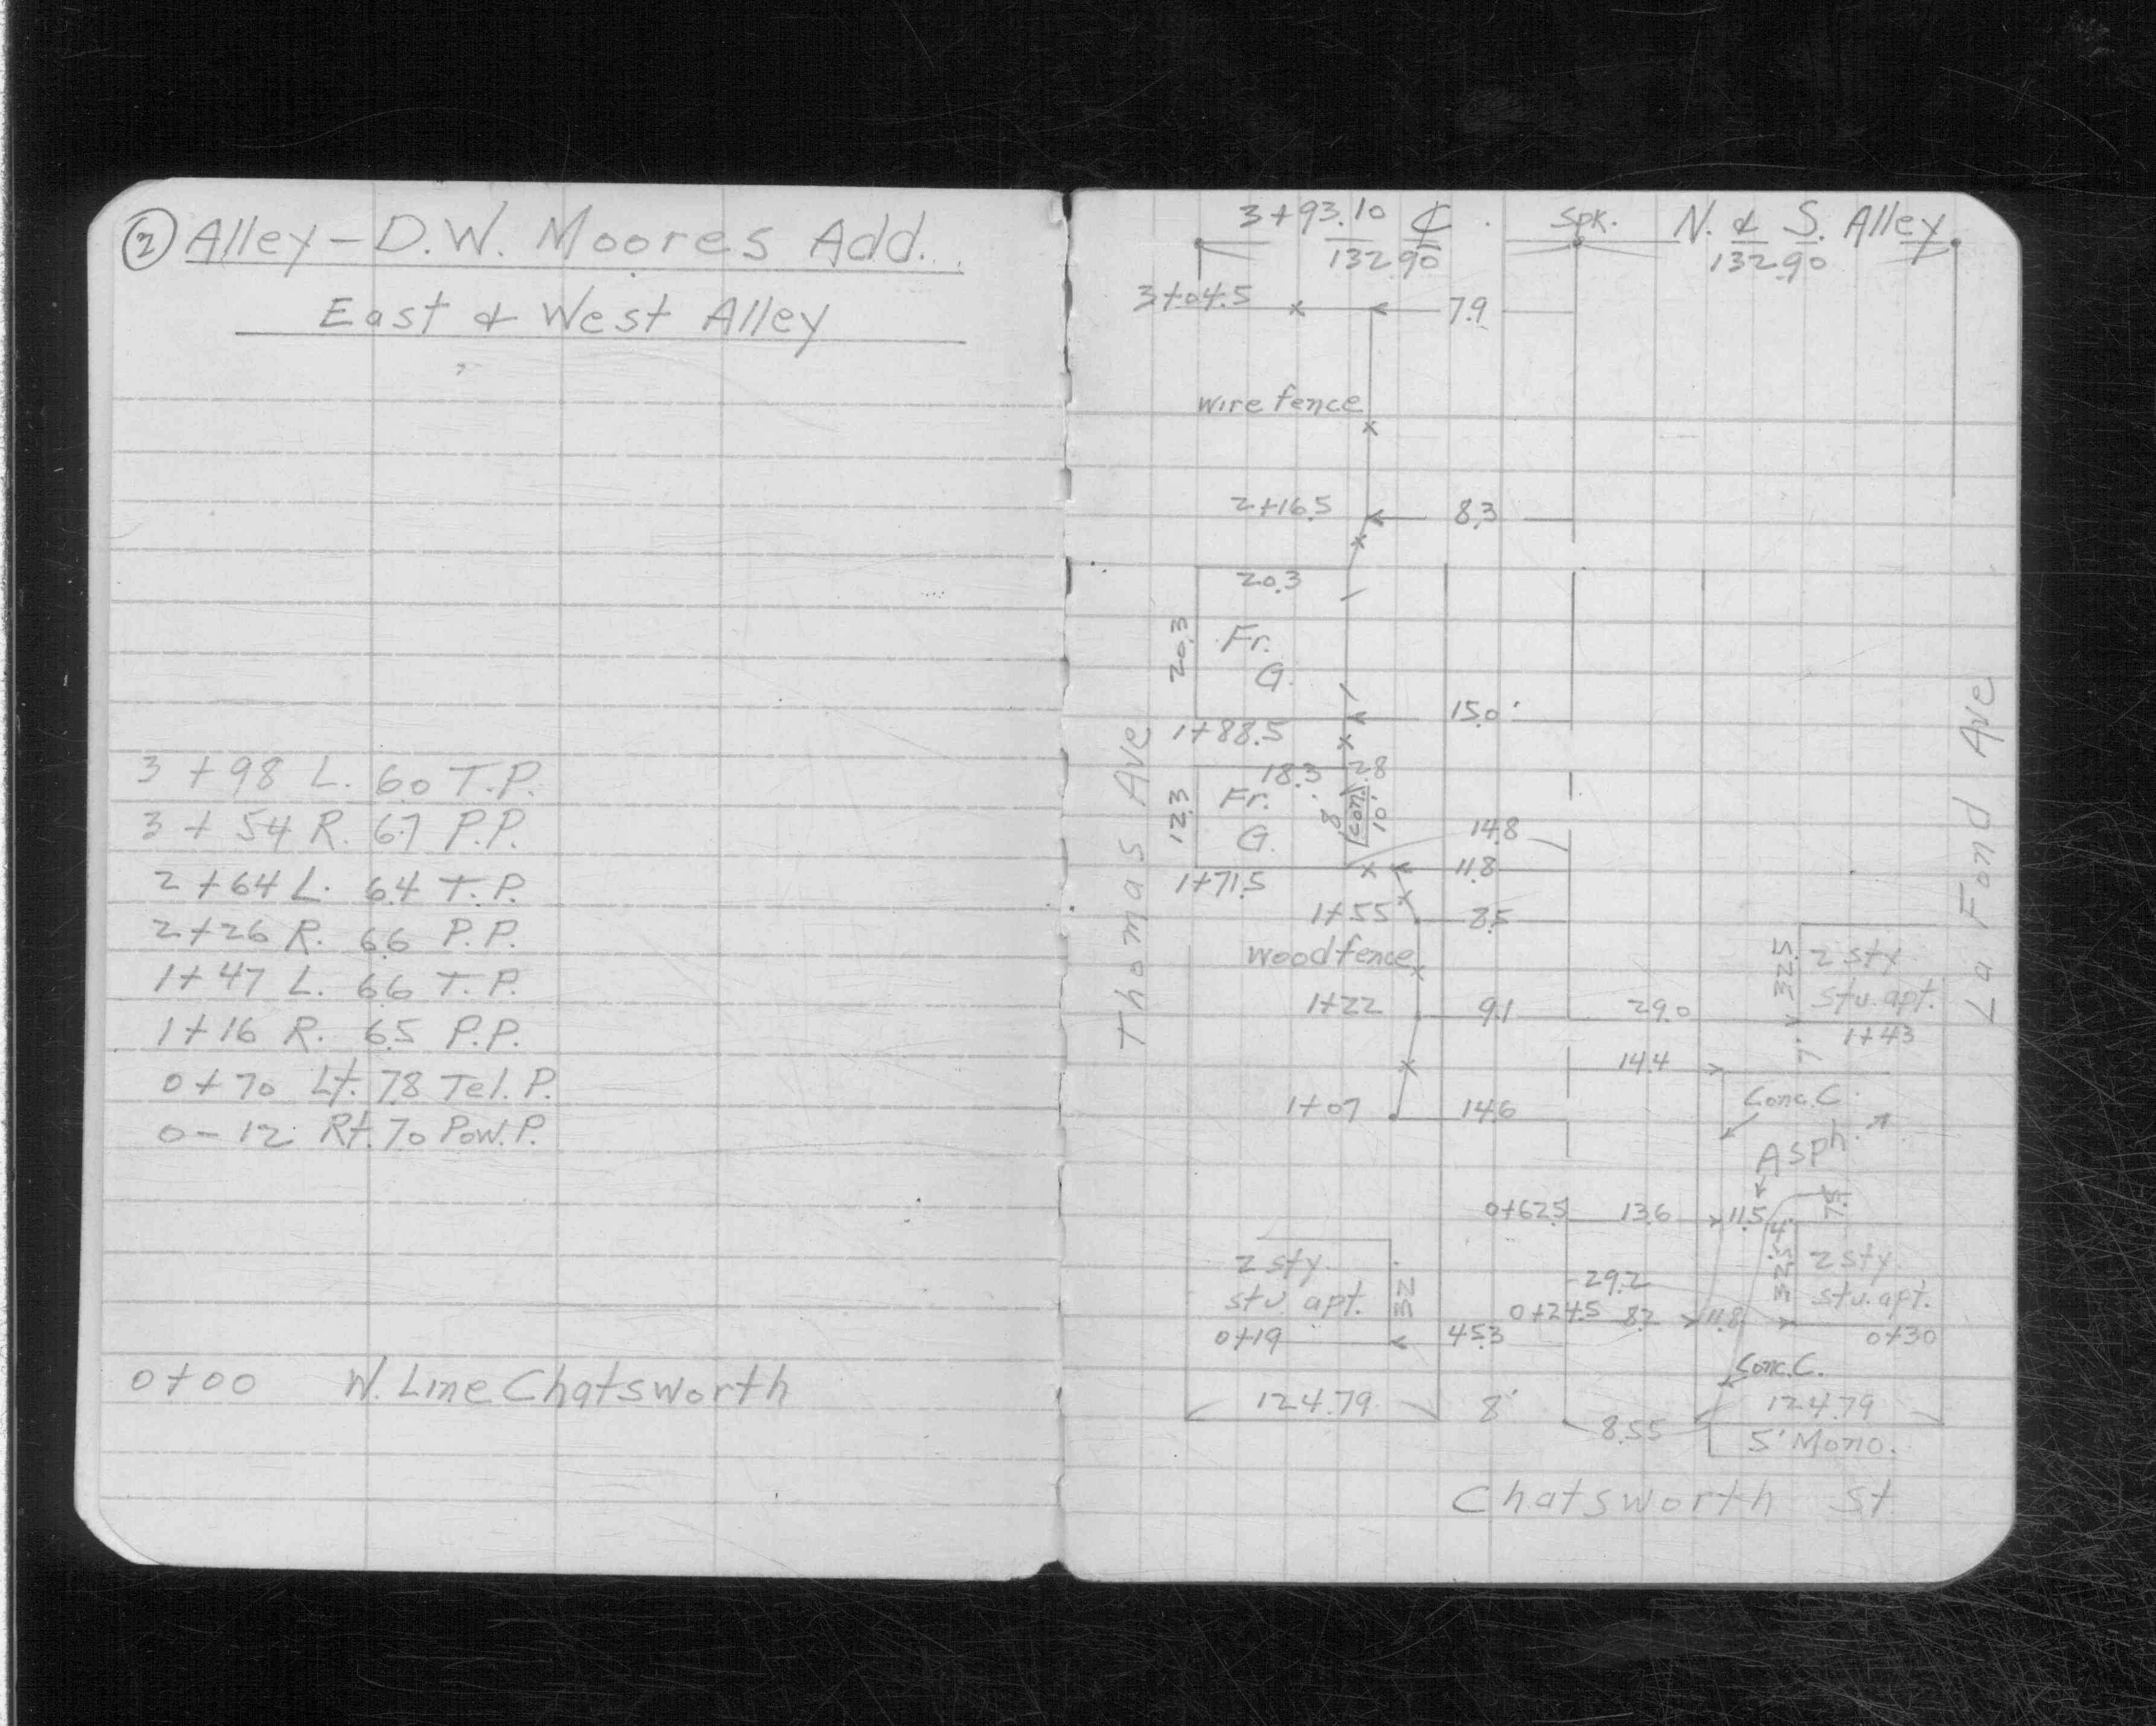 ② Alley - D.W. Moores Add.
East & West Alley
3 + 98 L. 6.0 T.P.
3 + 54 R. 6.7 P.P.
2 + 64 L. 6.4 T.P.
2 + 26 R. 6.6 P.P.
1 + 47 L. 6.6 T.P.
1 + 16 R. 6.5 P.P.
0 + 70 Lt. 7.8 Tel. P.
0 - 12 Rt. 7.0 Pow. P.
0 + 00 W. Line Chatsworth
3+93.10 ℄ Spk. N. & S. Alley
132.90 132.90
3+04.5 7.9
wire fence
2+16.5 8.3
20.3
20.3
Fr.
G.
15.0'
1+88.5
18.3 2.8
12.3
Fr.
G.
8'
con.
10'
14.8
11.8
1+71.5
1+55 8.5
wood fence
1+22 9.1 29.0
32.5
2 sty
stu. apt.
1+43
7'
14.4
1+07 14.6
Conc. C.
Asph.
0+62.5 13.6 11.5
4'
7.5
2 sty
stu. apt.
32
0+19 45.3
29.2
0+24.5 8.2 11.8
32.5
2 sty
stu. apt.
0+30
Conc. C.
124.79 8' 8.55 124.79
5' Mono.
Thomas Ave
La Fond Ave
Chatsworth St